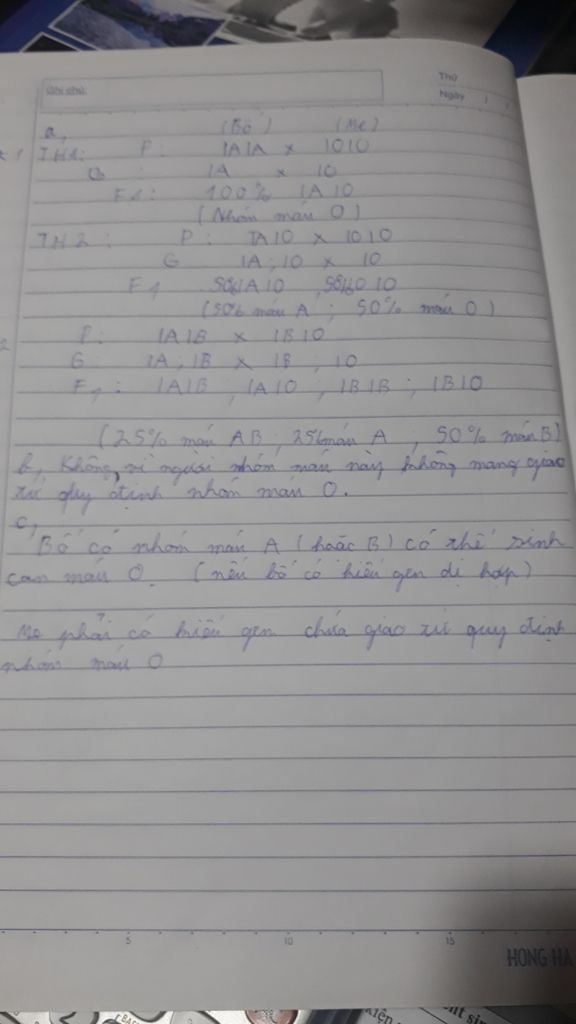 Ghi chú:
Thứ
Ngày / /
a, (Bố) (Mẹ)
TH1: P: IAIA x IOIO
G : IA x IO
F1: 100% IAIO
(Nhóm máu O)
TH2: P: IAIO x IOIO
G IA; IO x IO
F1 50% IAIO 50% IOIO
(50% máu A ; 50% máu O)
P: IAIB x IBIO
G IA; IB x IB; IO
F1: IAIB ; IAIO ; IBIB ; IBIO
(25% máu AB; 25% máu A ; 50% máu B)
b, Không, vì người nhóm máu này không mang giao
tử quy định nhóm máu O.
c,
Bố có nhóm máu A (hoặc B) có thể sinh
con máu O. (nếu bố có kiểu gen dị hợp)
Mẹ phải có kiểu gen chứa giao tử quy định
nhóm máu O
5 10 15
HONG HA